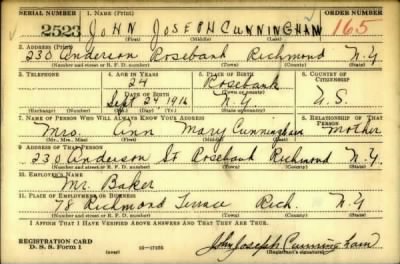 SERIAL NUMBER 1. NAME (Print) ORDER NUMBER
2523 JOHN JOSEPH CUNNINGHAM 165
(First) (Middle) (Last)
2. ADDRESS (Print)
230 Anderson Rosebank Richmond N.Y.
(Number and street or R. F. D. number) (Town) (County) (State)
3. TELEPHONE 4. AGE IN YEARS 5. PLACE OF BIRTH 6. COUNTRY OF CITIZENSHIP
24 Rosebank
DATE OF BIRTH (Town or county)
Sept 24 1916 N.Y. U.S.
(Exchange) (Number) (Mo.) (Day) (Yr.) (State or country)
7. NAME OF PERSON WHO WILL ALWAYS KNOW YOUR ADDRESS 8. RELATIONSHIP OF THAT PERSON
Mrs. Ann Mary Cunningham Mother
(Mr., Mrs., Miss) (First) (Middle) (Last)
9. ADDRESS OF THAT PERSON
230 Anderson St Rosebank Richmond N.Y.
(Number and street or R. F. D. number) (Town) (County) (State)
10. EMPLOYER'S NAME
Mr. Baker
11. PLACE OF EMPLOYMENT OR BUSINESS
78 Richmond Terrace Rich. N.Y
(Number and street or R. F. D. number) (Town) (County) (State)
I AFFIRM THAT I HAVE VERIFIED ABOVE ANSWERS AND THAT THEY ARE TRUE.
REGISTRATION CARD
D. S. S. Form 1 (over) 16-17105 John Joseph Cunningham
(Registrant's signature)